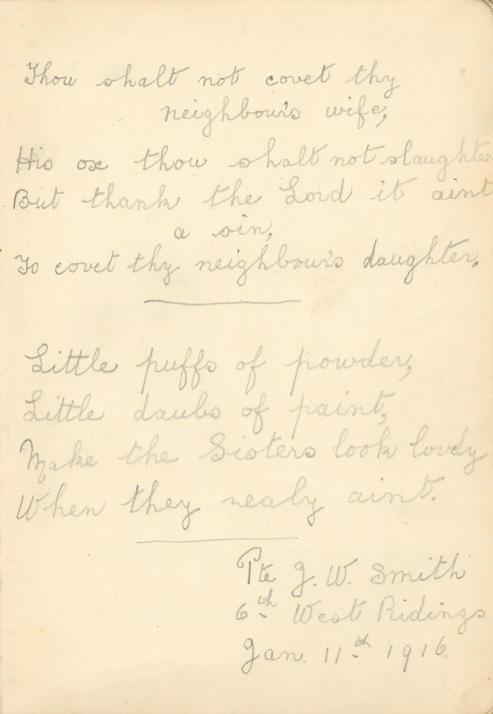 Thou shalt not covet thy
neighbour's wife,
His ox thou shalt not slaughter
But thank the Lord it aint
a sin,
To covet thy neighbour's daughter.
Little puffs of powder,
Little daubs of paint,
Make the Sisters look lovely
When they realy aint.
Pte J. W. Smith
6th West Ridings
Jan. 11th 1916.